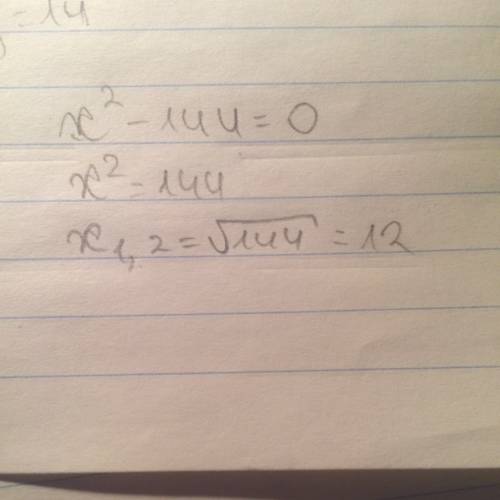 =14
x² - 144 = 0
x² = 144
x₁,₂ = √144 = 12